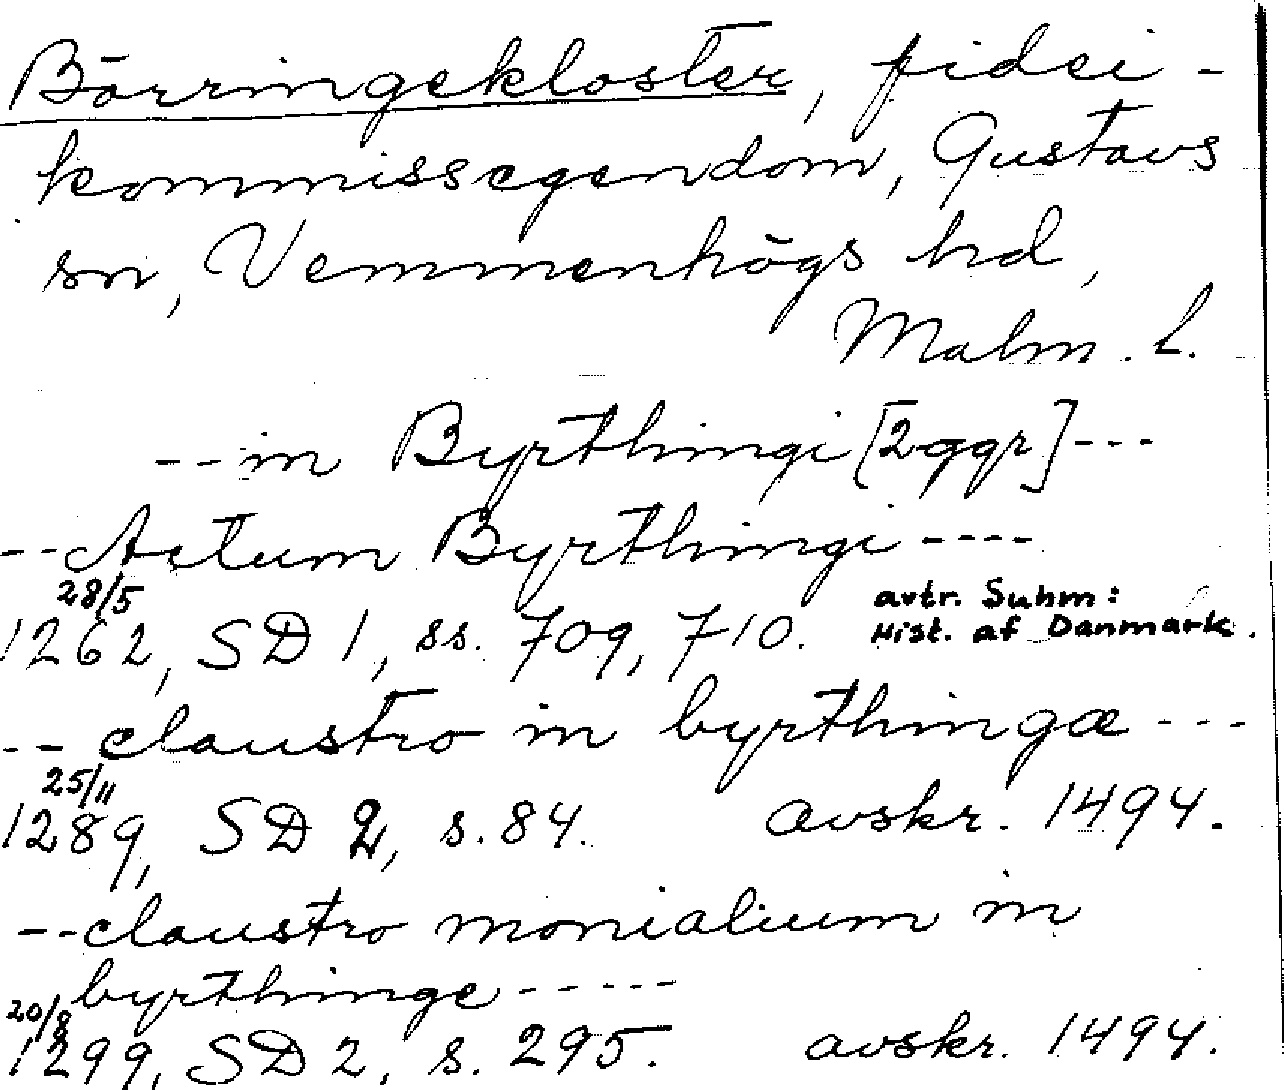 Börringekloster, fidei-
kommissegendom, Gustavs
sn, Vemmenhögs hd,
Malm. l.
--in Byrthingi [2 ggr]---
--Actum Byrthingi----
28/5
1262, SD 1, ss. 709, 710. avtr. Suhm:
Hist. af Danmark.
--claustro in byrthingæ---
25/11
1289, SD 2, s. 84. avskr. 1494.
--claustro monialium in
byrthinge-----
20/8
1299, SD 2, s. 295. avskr. 1494.